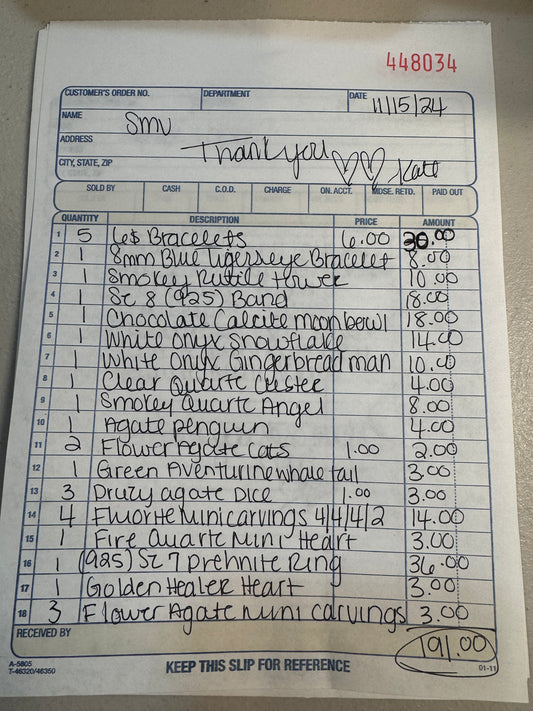 448034
CUSTOMER'S ORDER NO. DEPARTMENT DATE 11/15/24
NAME Smv
ADDRESS Thank you ♡♡ Kate
CITY, STATE, ZIP
SOLD BY CASH C.O.D. CHARGE ON. ACCT. MDSE. RETD. PAID OUT
QUANTITY DESCRIPTION PRICE AMOUNT
1 5 6$ Bracelets 6.00 30.00
2 1 8mm Blue Tigerseye Bracelet 8.00
3 1 Smokey Rutile tower 10.00
4 1 Sz 8 (925) Band 18.00
5 1 Chocolate Calcite moon bowl 18.00
6 1 White Onyx Snowflake 14.00
7 1 White Onyx Gingerbread man 10.00
8 1 Clear Quartz Cluster 4.00
9 1 Smokey Quartz Angel 8.00
10 1 Agate penguin 4.00
11 2 Flower Agate cats 1.00 2.00
12 1 Green Aventurine whale tail 3.00
13 3 Druzy agate Dice 1.00 3.00
14 4 Fluorite Mini carvings 4/4/4/2 14.00
15 1 Fire Quartz Mini Heart 3.00
16 1 (925) Sz 7 Prehnite Ring 36.00
17 1 Golden Healer Heart 3.00
18 3 Flower Agate mini carvings 3.00
RECEIVED BY 191.00
A-5805
T-46320/46350 KEEP THIS SLIP FOR REFERENCE 01-11